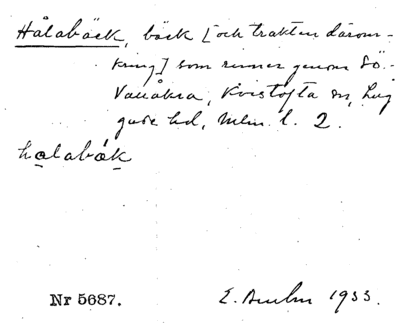 Hålabäck, bäck [och trakten därom-
kring] som rinner genom Sö.
Vallåkra, Kvistofta sn, Lug
gude hd, Mlm. l. 2.
halabäk
Nr 5687. E. 1933.